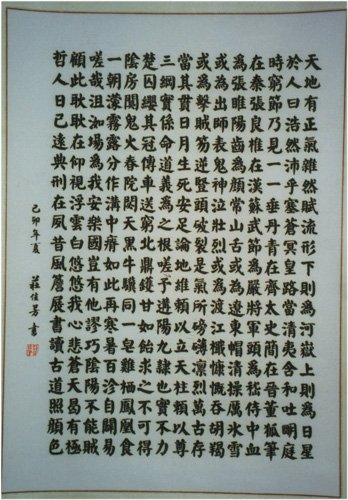 天地有正氣雜然賦流形下則為河嶽上則為日星
於人曰浩然沛乎塞蒼冥皇路當清夷含和吐明庭
時窮節乃見一一垂丹青在齊太史簡在晉董狐筆
在秦張良椎在漢蘇武節為嚴將軍頭為嵇侍中血
為張睢陽齒為顏常山舌或為遼東帽清操厲冰雪
或為出師表鬼神泣壯烈或為渡江楫慷慨吞胡羯
或為擊賊笏逆豎頭破裂是氣所磅礡凜烈萬古存
當其貫日月生死安足論地維賴以立天柱賴以尊
三綱實係命道義為之根嗟予遘陽九隸也實不力
楚囚纓其冠傳車送窮北鼎鑊甘如飴求之不可得
陰房闃鬼火春院閟天黑牛驥同一皁雞棲鳳凰食
一朝濛霧露分作溝中瘠如此再寒暑百沴自闢易
嗟哉沮洳場為我安樂國豈有他謬巧陰陽不能賊
顧此耿耿在仰視浮雲白悠悠我心悲蒼天曷有極
哲人日已遠典刑在夙昔風簷展書讀古道照顏色
己卯年夏 莊佳芳書